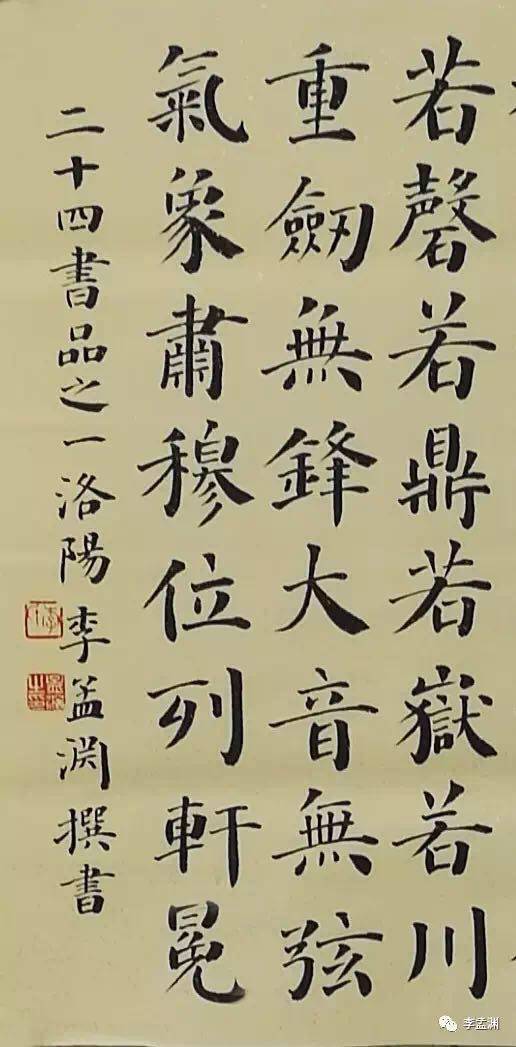 若磬若鼎若嶽若川
重劒無鋒大音無弦
氣象肅穆位列軒冕
二十四書品之一洛陽李孟渊撰書
李孟渊